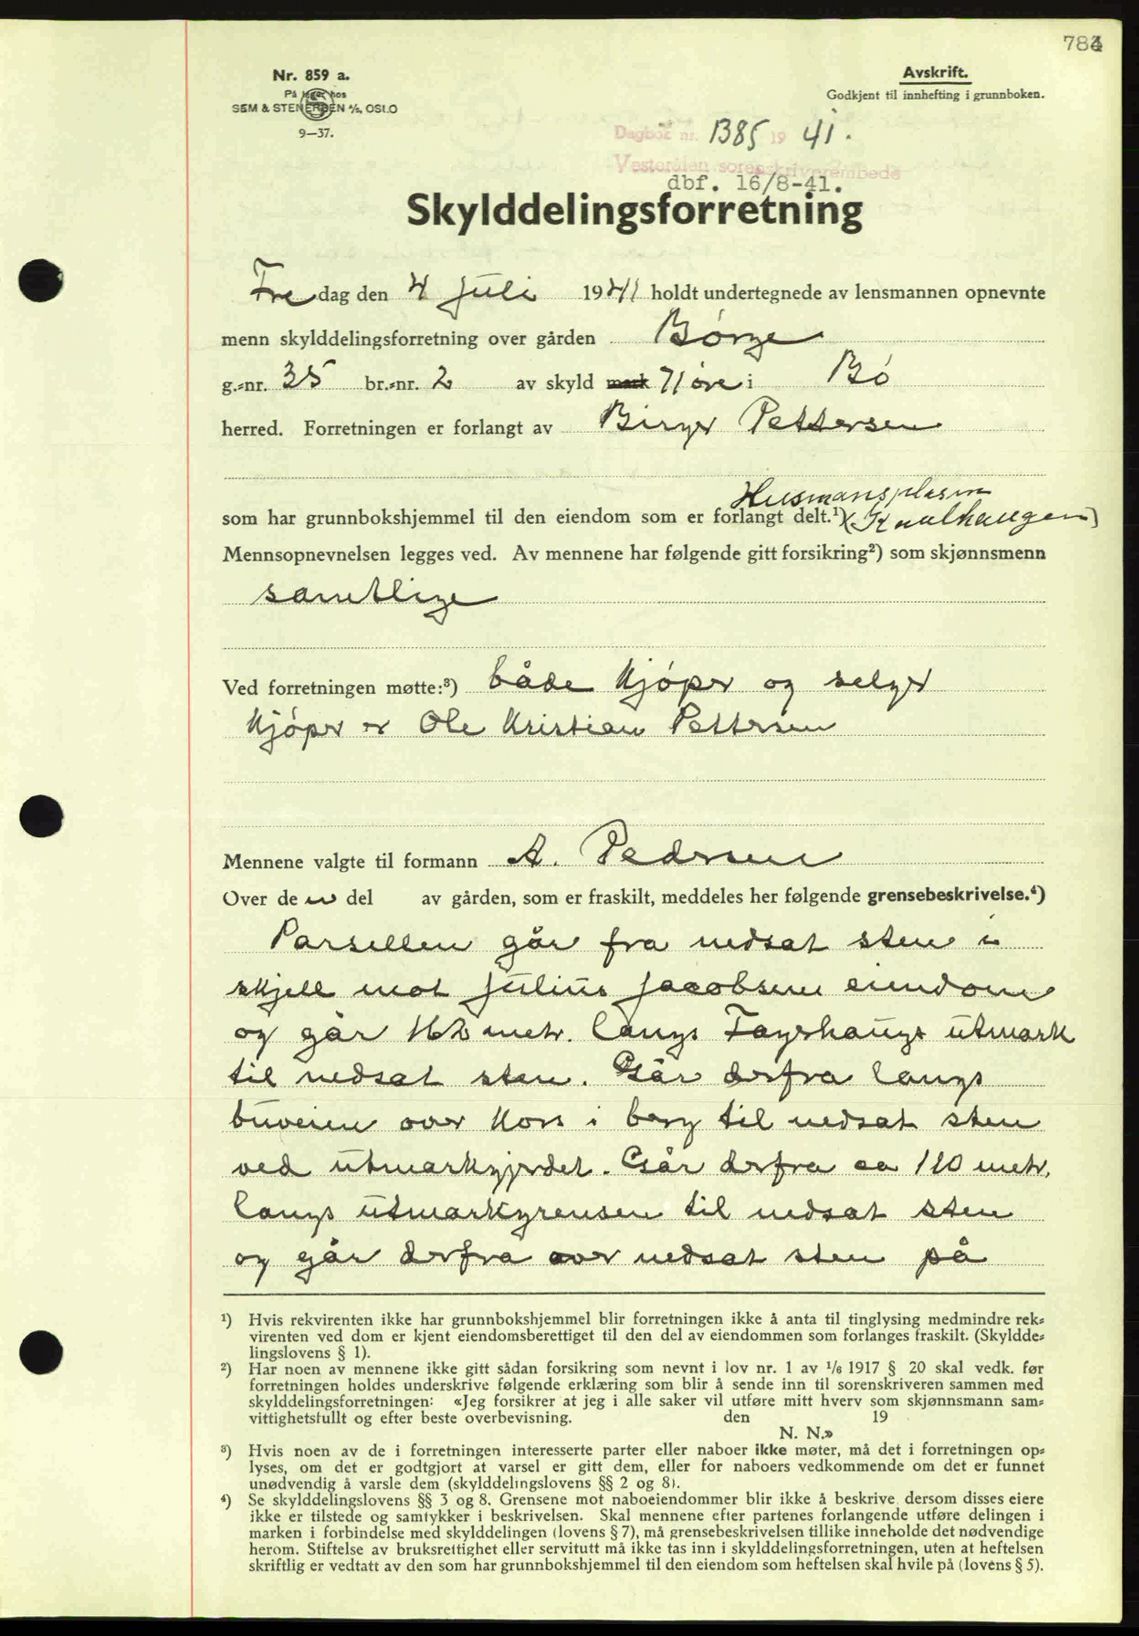 784
Nr. 859 a.
På lager hos
SEM & STENERSEN A/S, OSLO
9—37.
Avskrift.
Godkjent til innhefting i grunnboken.
Dagbok nr. 1385 19 41.
Vesterålen sorenskriverembede
dbf. 16/8-41.
Skylddelingsforretning
Fredag den 4 Juli 1941 holdt undertegnede av lensmannen opnevnte
menn skylddelingsforretning over gården Børge
g.-nr. 35 br.-nr. 2 av skyld mark 71 øre i Bø
herred. Forretningen er forlangt av Birger Pettersen
Husmansplasm
som har grunnbokshjemmel til den eiendom som er forlangt delt.¹) (Knulhaugen)
Mennsopnevnelsen legges ved. Av mennene har følgende gitt forsikring²) som skjønnsmenn
samtlige
Ved forretningen møtte:³) både kjøper og selger
Kjøper er Ole Kristian Pettersen
Mennene valgte til formann A. Pedersen
Over de n del av gården, som er fraskilt, meddeles her følgende grensebeskrivelse.⁴)
Parsellen går fra nedsat sten i
skjell mot Julius Jacobsens eiendom
og går 162 metr. langs Fagerhaugs utmark
til nedsat sten. Går derfra langs
buveien over kors i berg til nedsat sten
ved utmarkgjerdet. Går derfra ca 110 metr.
langs utmarkgrensen til nedsat sten
og går derfra over nedsat sten på
¹) Hvis rekvirenten ikke har grunnbokshjemmel blir forretningen ikke å anta til tinglysing medmindre rek-
virenten ved dom er kjent eiendomsberettiget til den del av eiendommen som forlanges fraskilt. (Skyldde-
lingslovens § 1).
²) Har noen av mennene ikke gitt sådan forsikring som nevnt i lov nr. 1 av 1/6 1917 § 20 skal vedk. før
forretningen holdes underskrive følgende erklæring som blir å sende inn til sorenskriveren sammen med
skylddelingsforretningen: «Jeg forsikrer at jeg i alle saker vil utføre mitt hverv som skjønnsmann sam-
vittighetsfullt og efter beste overbevisning. den 19
N. N.»
³) Hvis noen av de i forretningen interesserte parter eller naboer ikke møter, må det i forretningen op-
lyses, om det er godtgjort at varsel er gitt dem, eller for naboers vedkommende om det er funnet
unødvendig å varsle dem (skylddelingslovens §§ 2 og 8).
⁴) Se skylddelingslovens §§ 3 og 8. Grensene mot naboeiendommer blir ikke å beskrive dersom disses eiere
ikke er tilstede og samtykker i beskrivelsen. Skal mennene efter partenes forlangende utføre delingen i
marken i forbindelse med skylddelingen (lovens § 7), må grensebeskrivelsen tillike inneholde det nødvendige
herom. Stiftelse av bruksrettighet eller servitutt må ikke tas inn i skylddelingsforretningen, uten at heftelsen
skriftlig er vedtatt av den som har grunnbokshjemmel til den eiendom som heftelsen skal hvile på (lovens § 5).